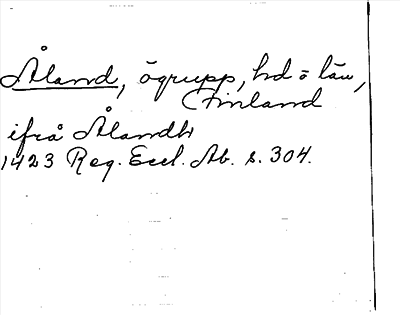 Åland, ögrupp, hd o län,
Finland
ifrå Ålandh
1423 Reg. Eccl. Ab. s. 304.